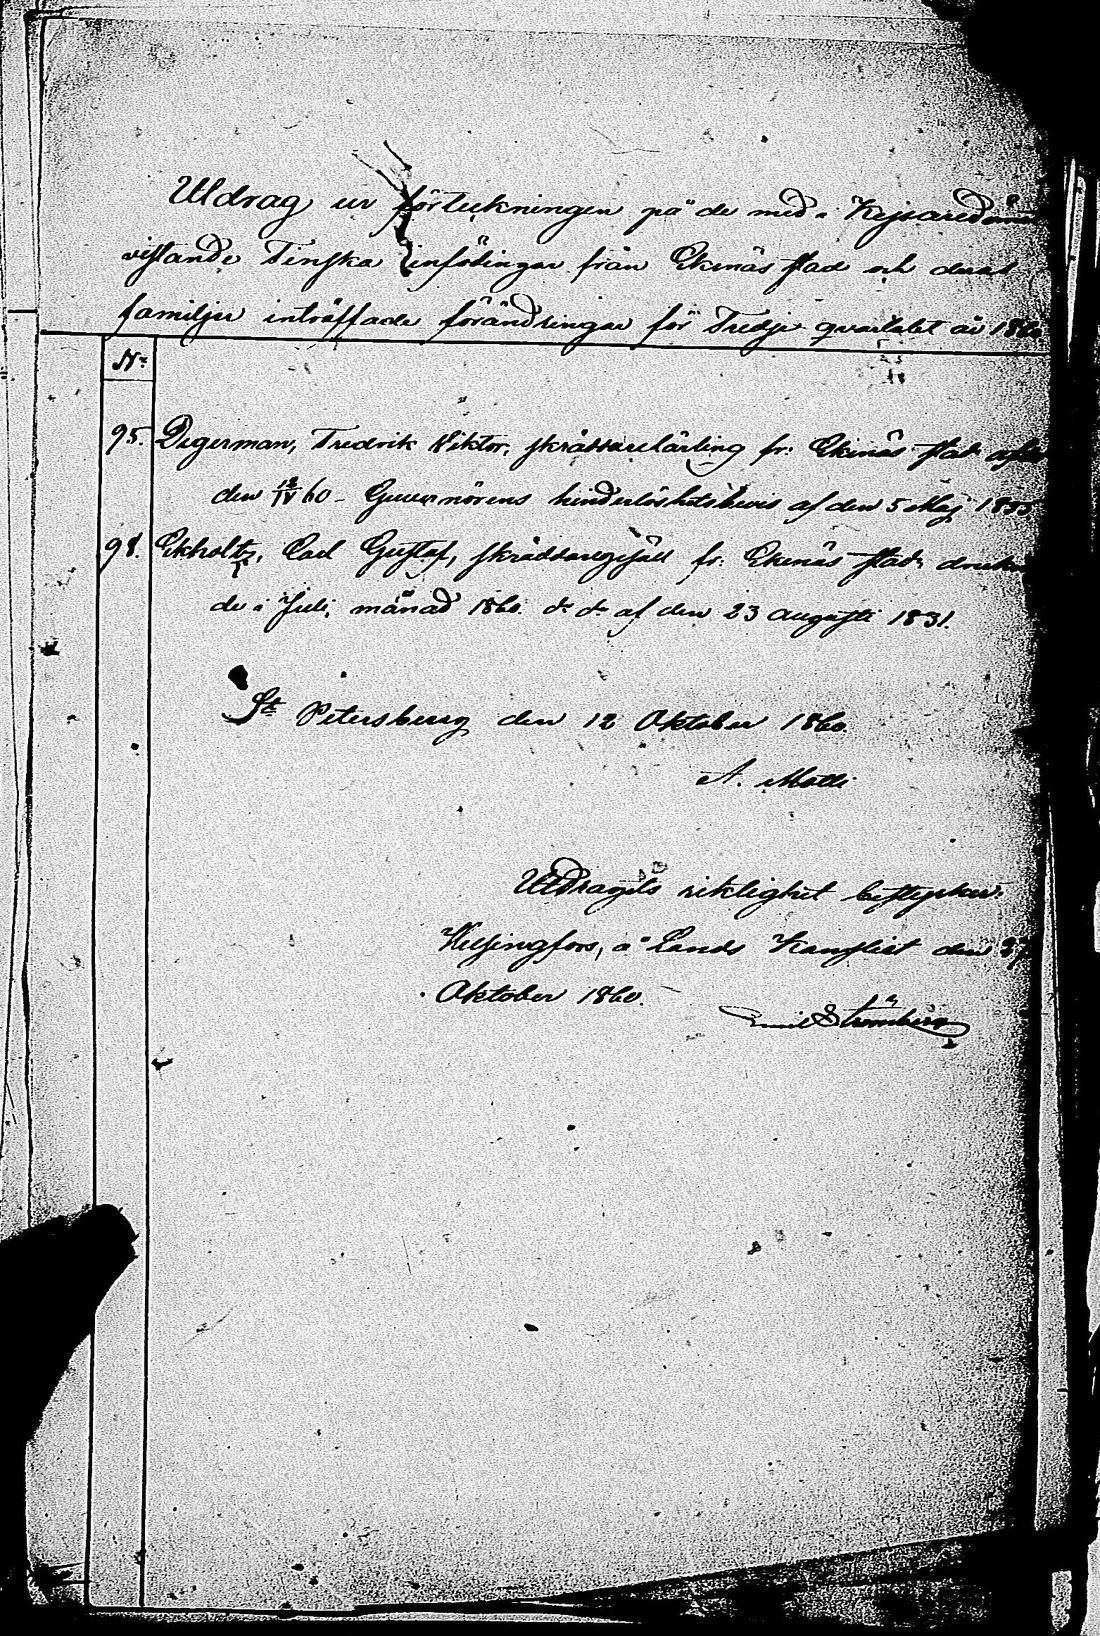 Utdrag ur förteckningen på de med i Kejsaredöm
vistande Finska infödingar från Ekenäs stad och deras
familjer inträffade förändringar för Tredje qvartalet år 1860
No
95. Degerman, Fredrik Viktor, skräddarelärling fr: Ekenäs stad
den 60 - Guvernörens hinderlöshetsbevis af den 5 Maj 1855
98. Ekholtz, Carl Gustaf, skräddaregesäll fr: Ekenäs stad, drukna
de i Juli månad 1860. d:o d:o af den 23 Augusti 1831.
St Petersburg den 12 Oktober 1860.
A. Molli
Utdragets riktighet bestyrker.
Helsingfors, å Lands Kansliet den 27
Oktober 1860.
Emil Strömberg